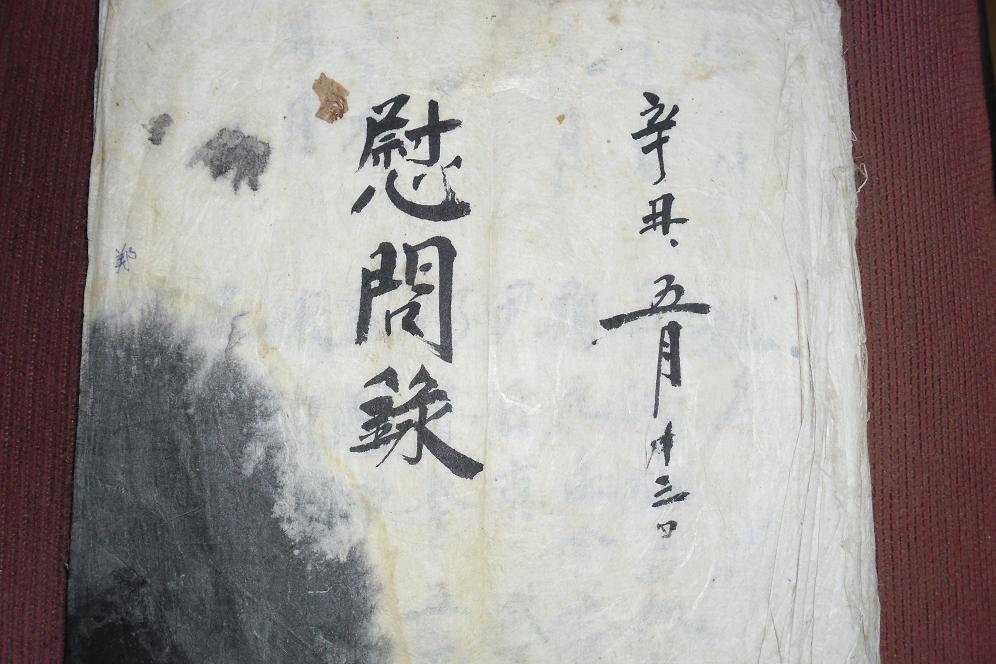 辛丑、五月廿三日
慰問錄
鄭